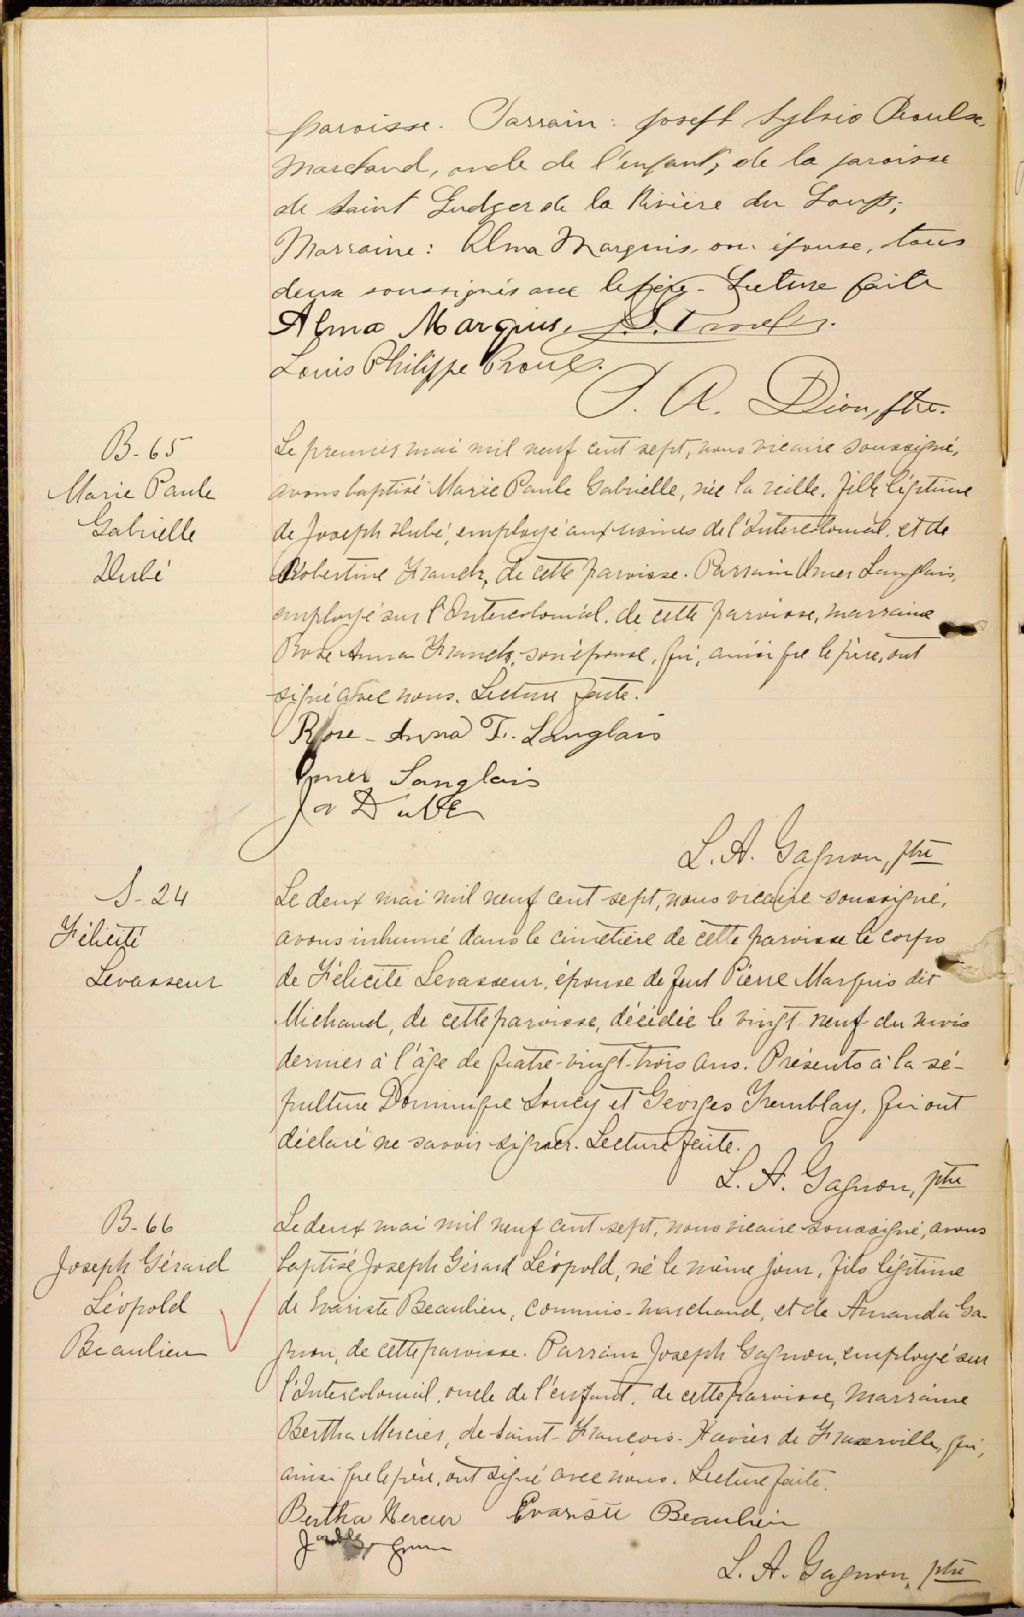 paroisse. Parrain: Joseph Sylvio Proulx,
marchand, oncle de l'enfant, de la paroisse
de Saint Ludger de la Rivière du Loup;
Marraine: Alma Marquis, son épouse, tous
deux soussignés avec le père. Lecture faite
Alma Marquis. J. S. Proulx.
Louis Philippe Proulx.
J. A. Dion, ptre.
B-65
Marie Paule
Gabrielle
Dubé
Le premier mai mil neuf cent sept, nous vicaire soussigné,
avons baptisé Marie Paule Gabrielle, née la veille, fille légitime
de Joseph Dubé, employé aux usines de l'Intercolonial, et de
Robertine Franck, de cette paroisse. Parrain Omer Langlais,
employé sur l'Intercolonial, de cette paroisse, marraine
Rose Anna Franck, son épouse, qui, ainsi que le père, ont
signé avec nous. Lecture faite.
Rose-Anna F. Langlais
Omer Langlais
Jos Dubé
L. A. Gagnon, ptre
S-24
Félicité
Levasseur
Le deux mai mil neuf cent sept, nous vicaire soussigné,
avons inhumé dans le cimetière de cette paroisse le corps
de Félicité Levasseur, épouse de feu Pierre Marquis dit
Michaud, de cette paroisse, décédée le vingt-neuf du mois
dernier à l'âge de quatre-vingt-trois ans. Présents à la sé-
pulture Dominique Soucy et Georges Tremblay, qui ont
déclaré ne savoir signer. Lecture faite.
L. A. Gagnon, ptre
B-66
Joseph Gérard
Léopold
Beaulieu
Le deux mai mil neuf cent sept, nous vicaire soussigné, avons
baptisé Joseph Gérard Léopold, né le même jour, fils légitime
de Evariste Beaulieu, commis-marchand, et de Amanda Ga-
gnon, de cette paroisse. Parrain Joseph Gagnon, employé sur
l'Intercolonial, oncle de l'enfant, de cette paroisse, marraine
Bertha Mercier, de Saint-François-Xavier de Fraserville, qui,
ainsi que le père, ont signé avec nous. Lecture faite.
Bertha Mercier Evariste Beaulieu
L. A. Gagnon, ptre